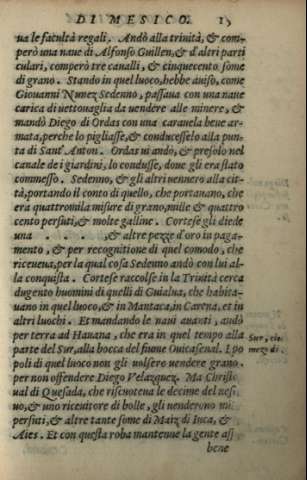 DI MESICO. 15
ua le facultà regali. Andò alla trinità, & com-
però una naue di Alfonso Guillen, & d'altri parti
culari, comperò tre caualli, & cinquecento some
di grano. Stando in quel luoco, hebbe auiso, come
Giouanni Nunez Sedenno, passaua con una naue
carica di uettouaglia da uendere alle minere, &
mandò Diego di Ordas con una carauela bene ar-
mata, perche lo pigliasse, & conducesselo alla pun-
ta di Sant' Anton. Ordas ui andò, & preselo nel
canale de i giardini, lo condusse, doue gli era stato
commesso. Sedenno, & gli altri uennero alla cit-
tà, portando il conto di quello, che portauano, che
era quattromila misure di grano, mille & quattro
cento persuti, & molte galline. Cortese gli diede
una . . . . , & altre pezze d'oro in paga-
mento, & per recognitione di quel comodo, che
riceueua, per la qual cosa Sedenno andò con lui al-
la conquista. Cortese raccolse in la Trinità cerca
dugento huomini di quelli di Gualua, che habita-
uano in quel luoco, & in Mantaca, in Carena, et in
altri luochi. Et mandando le naui auanti, andò
per terra ad Hauana, che era in quel tempo alla
parte del Sur, alla bocca del fiume Onicasenal. I po
poli di quel luoco non gli uolsere uendere grano.
per non offendere Diego Velazquez. Ma Christo
ual di Quesada, che riscuoteua le decime del uesco
uo, & uno riceuitore di bolle, gli uenderono mille
persuti, & altre tante some di Maiz di Iuca, &
Aies. Et con questa roba mantenue la gente assi
bene
Sur, cioè
mezo dì.